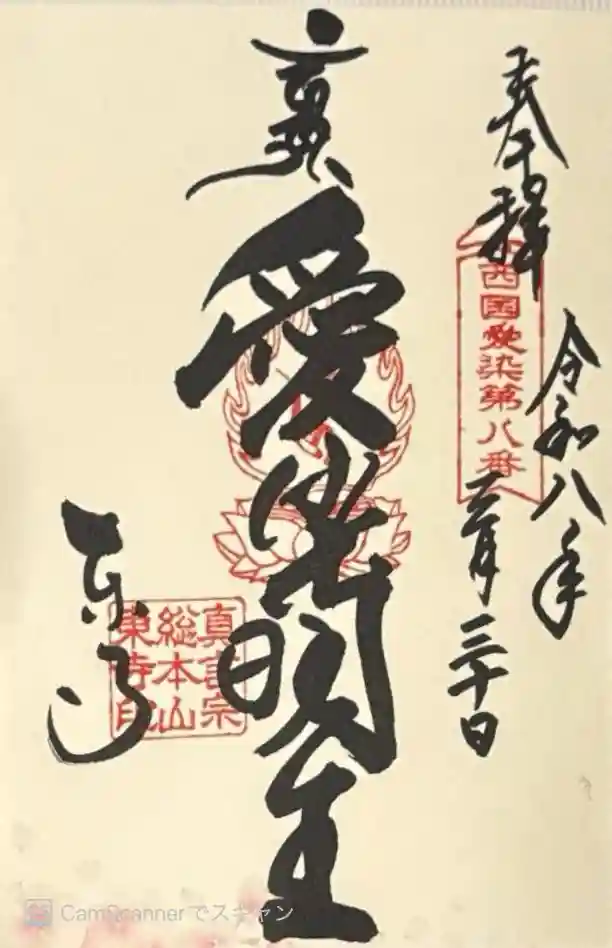 奉拝
西國愛染第八番
令和八年
月三十日
愛染明王
東寺
真言宗
総本山
東寺印
CamScannerでスキャン